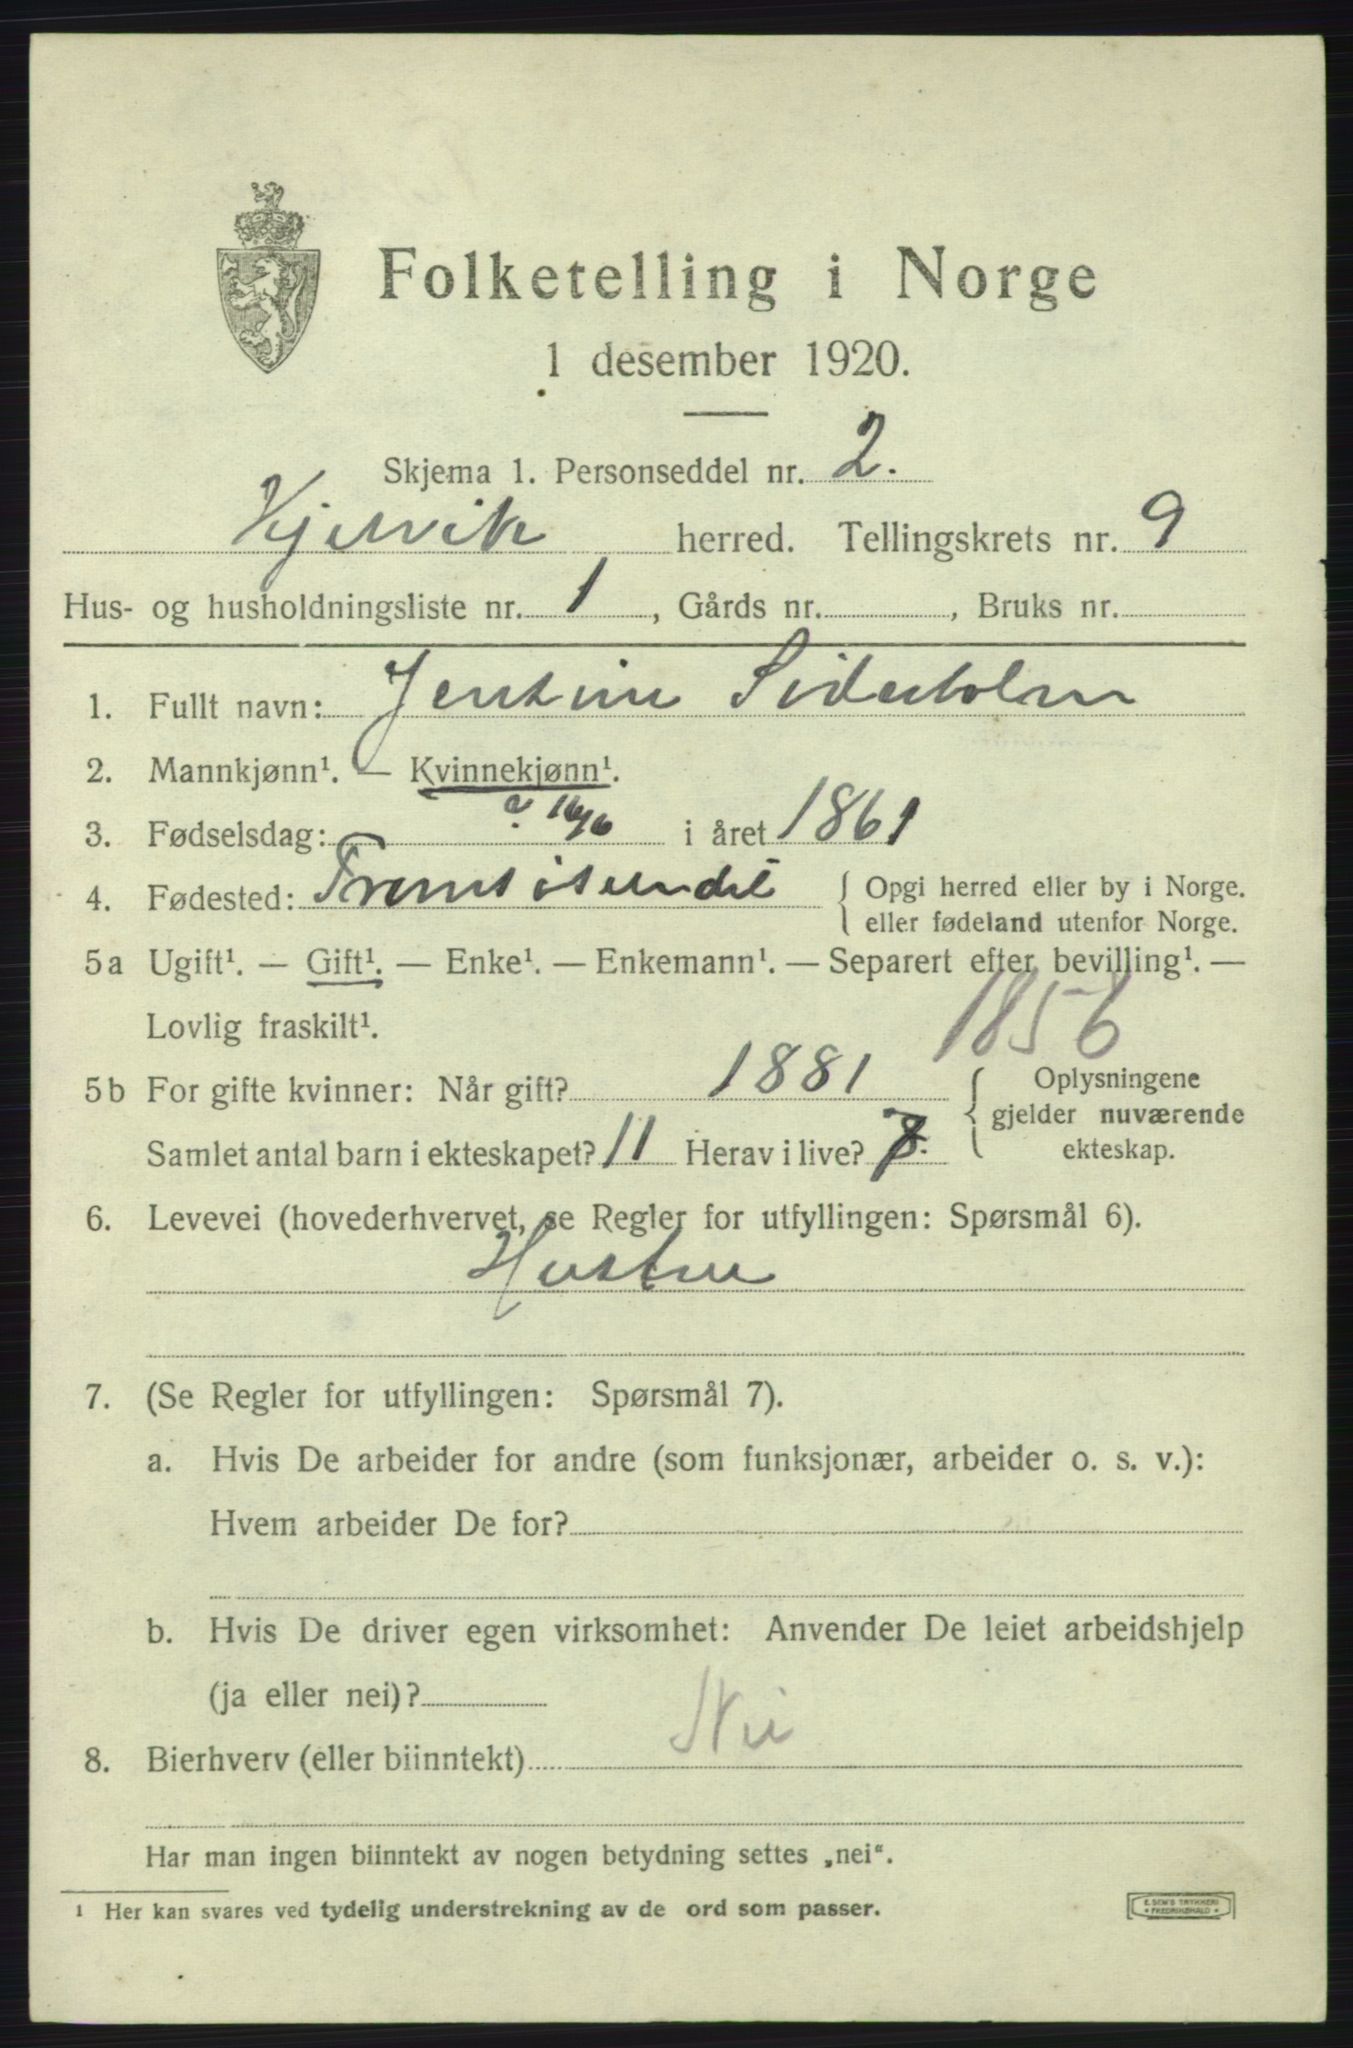 Folketelling i Norge
1 desember 1920.
Skjema 1. Personseddel nr. 2.
Kjelvik herred. Tellingskrets nr. 9
Hus- og husholdningsliste nr. 1, Gårds nr. , Bruks nr.
1. Fullt navn: Jentine Söderholm
2. Mannkjønn¹. — Kvinnekjønn¹.
3. Fødselsdag: ? 16/6 i året 1861
4. Fødested: Tromsösundet { Opgi herred eller by i Norge.
eller fødeland utenfor Norge.
5a Ugift¹. — Gift¹. — Enke¹. — Enkemann¹. — Separert efter bevilling¹. —
Lovlig fraskilt¹. 1856
5b For gifte kvinner: Når gift? 1881 { Oplysningene
gjelder nuværende
Samlet antal barn i ekteskapet? 11 Herav i live? 7. ekteskap.
6. Levevei (hovederhvervet, se Regler for utfyllingen: Spørsmål 6).
Hustru
7. (Se Regler for utfyllingen: Spørsmål 7).
a. Hvis De arbeider for andre (som funksjonær, arbeider o. s. v.):
Hvem arbeider De for?
b. Hvis De driver egen virksomhet: Anvender De leiet arbeidshjelp
(ja eller nei)?
8. Bierhverv (eller biinntekt) Nei
Har man ingen biinntekt av nogen betydning settes „nei“.
¹ Her kan svares ved tydelig understrekning av de ord som passer.
E. SEM'S TRYKKERI
FREDRIKSHALD